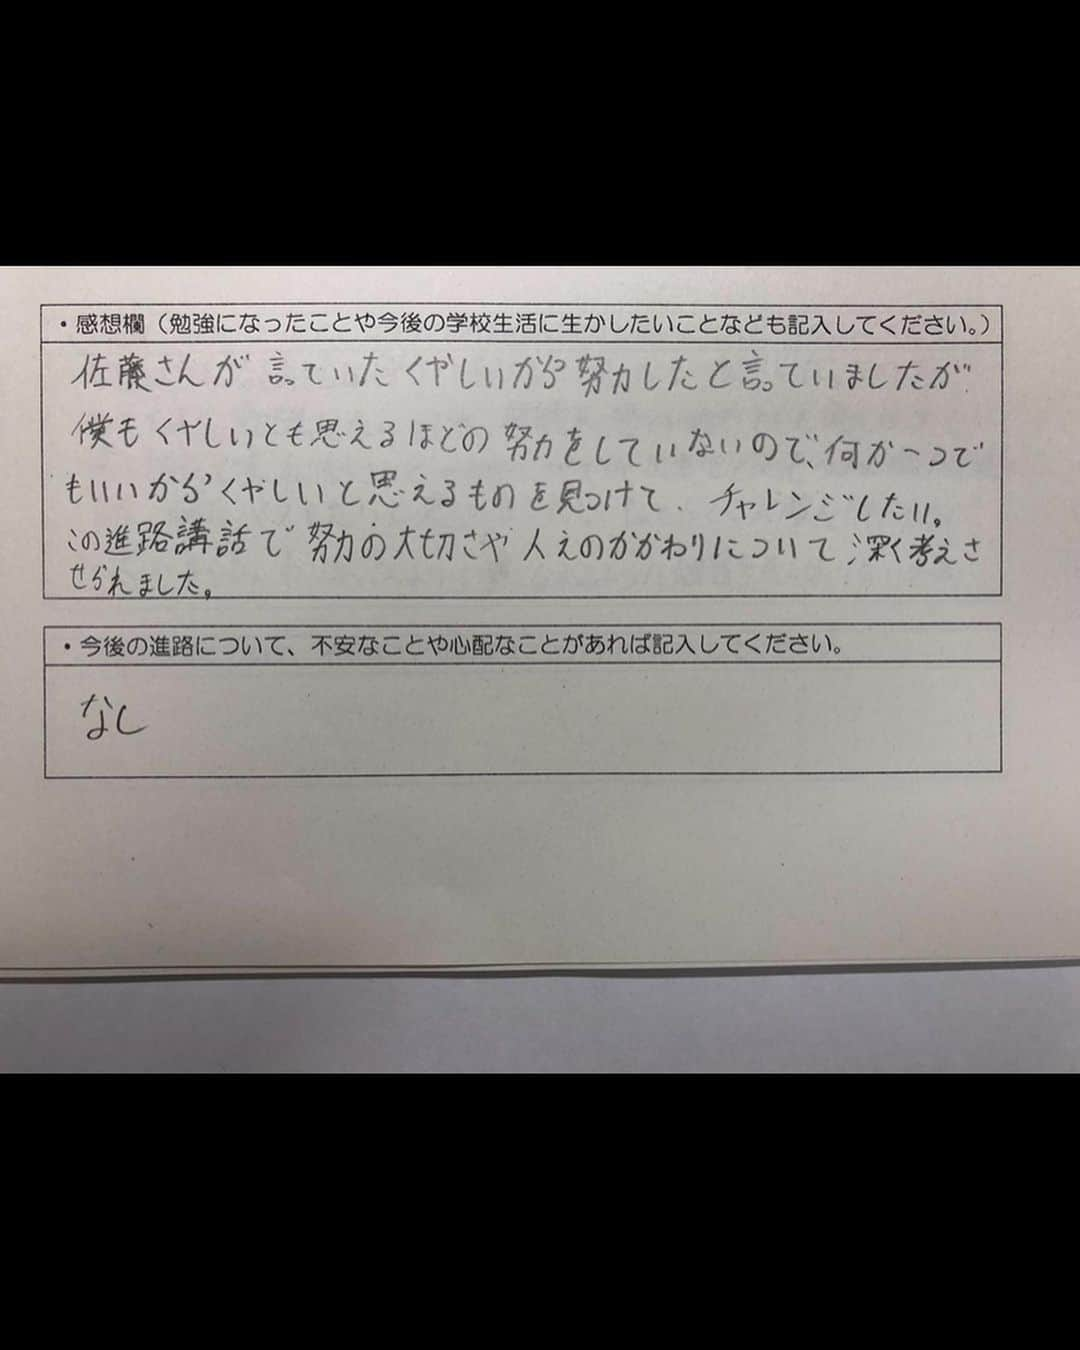 ・感想欄（勉強になったことや今後の学校生活に生かしたいことなども記入してください。）
佐藤さんが言っていたくやしいから努力したと言っていましたが
僕もくやしいとも思えるほどの努力をしていないので、何か一つで
もいいからくやしいと思えるものを見つけて、チャレンジしたい。
この進路講話で努力の大切さや人えのかかわりについて深く考えさ
せられました。
・今後の進路について、不安なことや心配なことがあれば記入してください。
なし